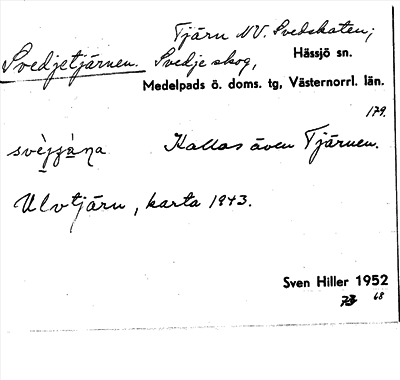 Tjärn NV. Svedskaten;
Svedjetjärnen. Svedje skog, Hässjö sn.
Medelpads ö. doms. tg, Västernorrl. län.
179.
Kallas även Tjärnen.
Ulvtjärn, karta 1943.
Sven Hiller 1952
73 68